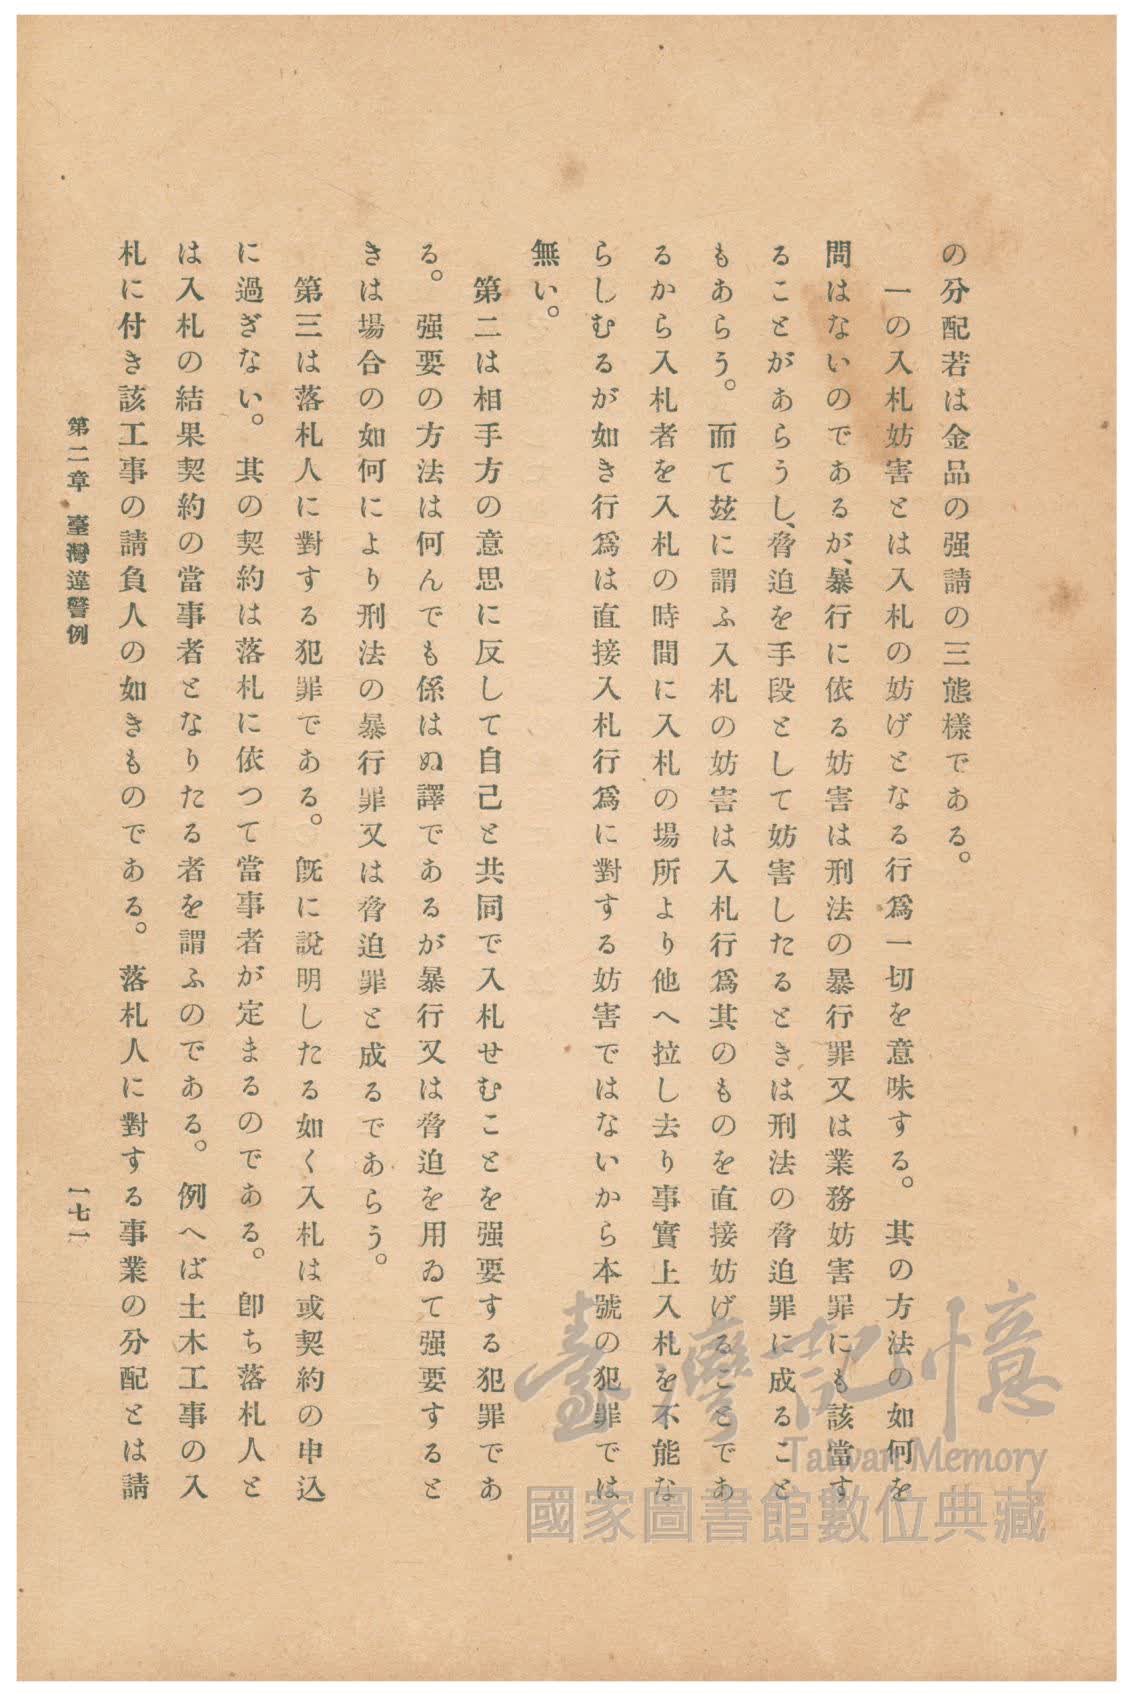 の分配若は金品の强請の三態樣である。
一の入札妨害とは入札の妨げとなる行爲一切を意味する。其の方法の如何を
問はないのであるが、暴行に依る妨害は刑法の暴行罪又は業務妨害罪にも該當す
ることがあらうし、脅迫を手段として妨害したるときは刑法の脅迫罪に成ること
もあらう。而て玆に謂ふ入札の妨害は入札行爲其のものを直接妨げることであ
るから入札者を入札の時間に入札の場所より他へ拉し去り事實上入札を不能な
らしむるが如き行爲は直接入札行爲に對する妨害ではないから本號の犯罪では
無い。
第二は相手方の意思に反して自己と共同で入札せむことを强要する犯罪であ
る。强要の方法は何んでも係はぬ譯であるが暴行又は脅迫を用ゐて强要すると
きは場合の如何により刑法の暴行罪又は脅迫罪と成るであらう。
第三は落札人に對する犯罪である。旣に說明したる如く入札は或契約の申込
に過ぎない。其の契約は落札に依つて當事者が定まるのである。卽ち落札人と
は入札の結果契約の當事者となりたる者を謂ふのである。例へば土木工事の入
札に付き該工事の請負人の如きものである。落札人に對する事業の分配とは請
第二章 臺灣違警例
一七一
臺灣記憶
Taiwan Memory
國家圖書館數位典藏